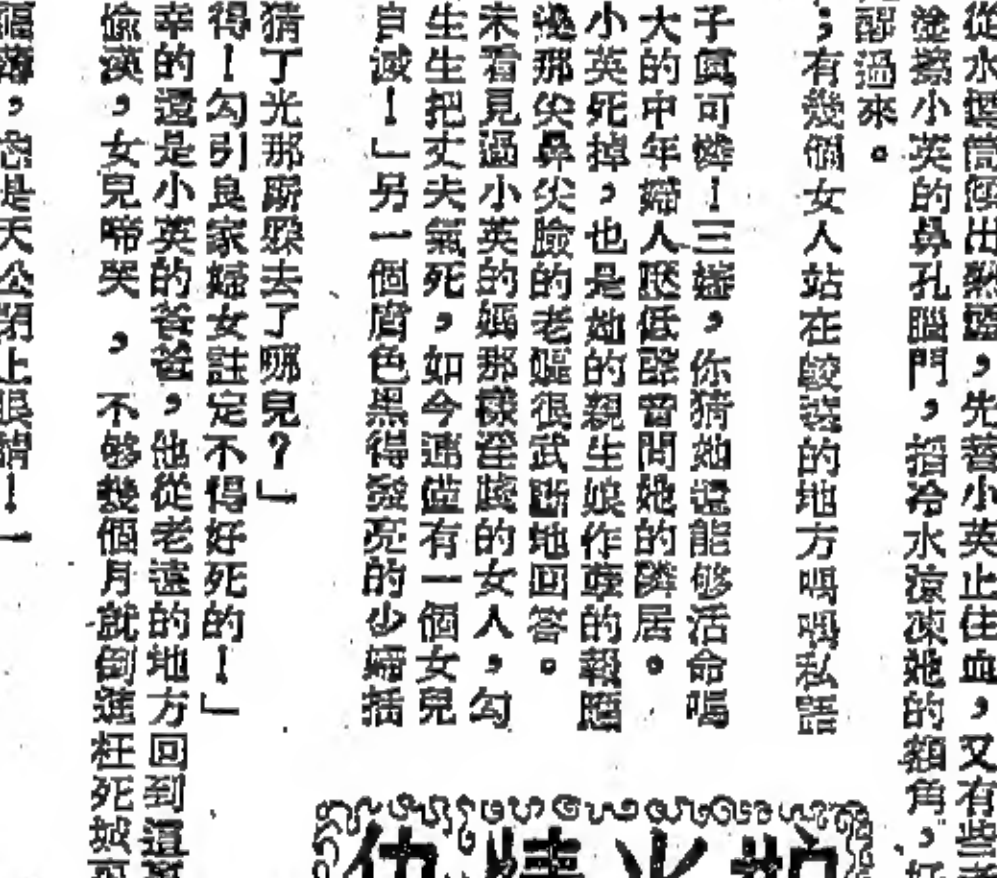 從水煙筒傾出熱鹽,先替小英止住血,又有些
塗擦小英的鼻孔腦門,搯冷水涼凍她的額角,
醒過來。
;有幾個女人站在較遠的地方嗎嗎私語
子眞可憐!三嬸,你猜她還能够活命嗎
大的中年婦人壓低聲音問她的隣居。
小英死掉,也是她的親生娘作孽的報應
那尖鼻尖臉的老嫗很武斷地回答。
未看見過小英的媽那樣淫賤的女人,勾
生生把丈夫氣死,如今連僅有一個女兒
自 !」另一個膚色黑得發亮的少婦插
猜了光那 躱去了哪兒?」
得!勾引良家婦女註定不得好死的!」
幸的還是小英的爸爸,他從老遠的地方回到這
偸漢,女兒啼哭,不够幾個月就倒進枉死城
福薄,怨是天公閉上眼睛!